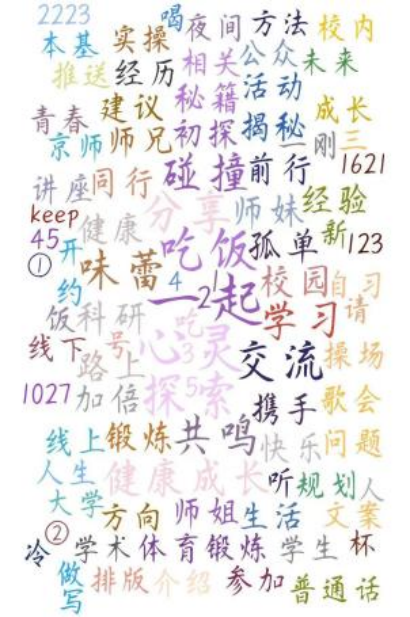 2223 喝 夜间 方法 校内
本基 实操 公众
推送 经历 相关 未来
秘籍 活动
青春 建议 成长
京师 师兄 初探 揭秘 一 刚 三
碰撞 前行 1621
讲座 同行
keep 分享 师妹 经验
45 开 健康 吃饭 孤单 新 123
① 味蕾
约 4 一起 2 1 校园 自习
饭 科研 吃 学习 请
线下 号 心灵 3
路上 交流 操场
1027 加倍 探索 5 携手 歌会
线上 锻炼 共鸣 快乐 问题
人生 健康成长 听 规划 人
大学 方向 师姐 生活 文案
② 冷 学术 体育锻炼 学生 杯
做 排版 介绍 参加 普通话
写